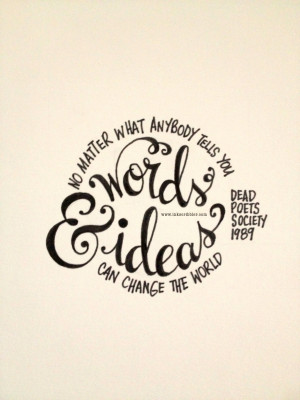 NO MATTER WHAT ANYBODY TELLS YOU
words
& ideas
CAN CHANGE THE WORLD
DEAD
POETS
SOCIETY
1989